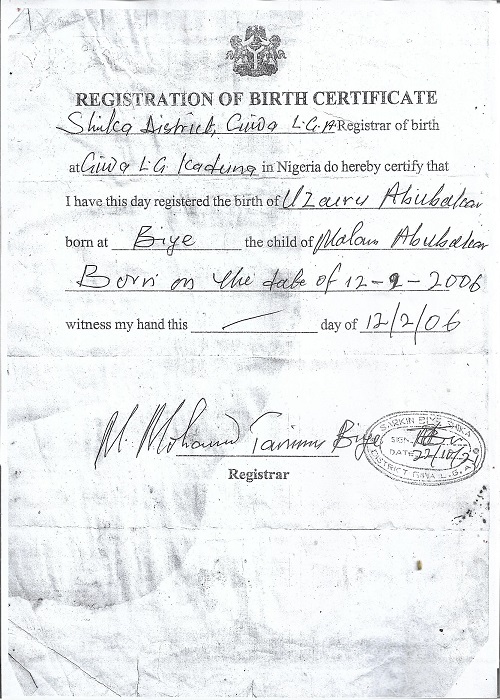 REGISTRATION OF BIRTH CERTIFICATE
Shika District, Giwa L.G.A Registrar of birth
at Giwa L.G Kaduna in Nigeria do hereby certify that
I have this day registered the birth of Uzairu Abubakar
born at Biye the child of Malam Abubakar
Born on the date of 12-2-2006
witness my hand this — day of 12/2/06
M. Mohamd Biye
Registrar
SARKIN BIYE SHIKA
SIGN
DATE 22/10/2
DISTRICT GIWA L.G.A